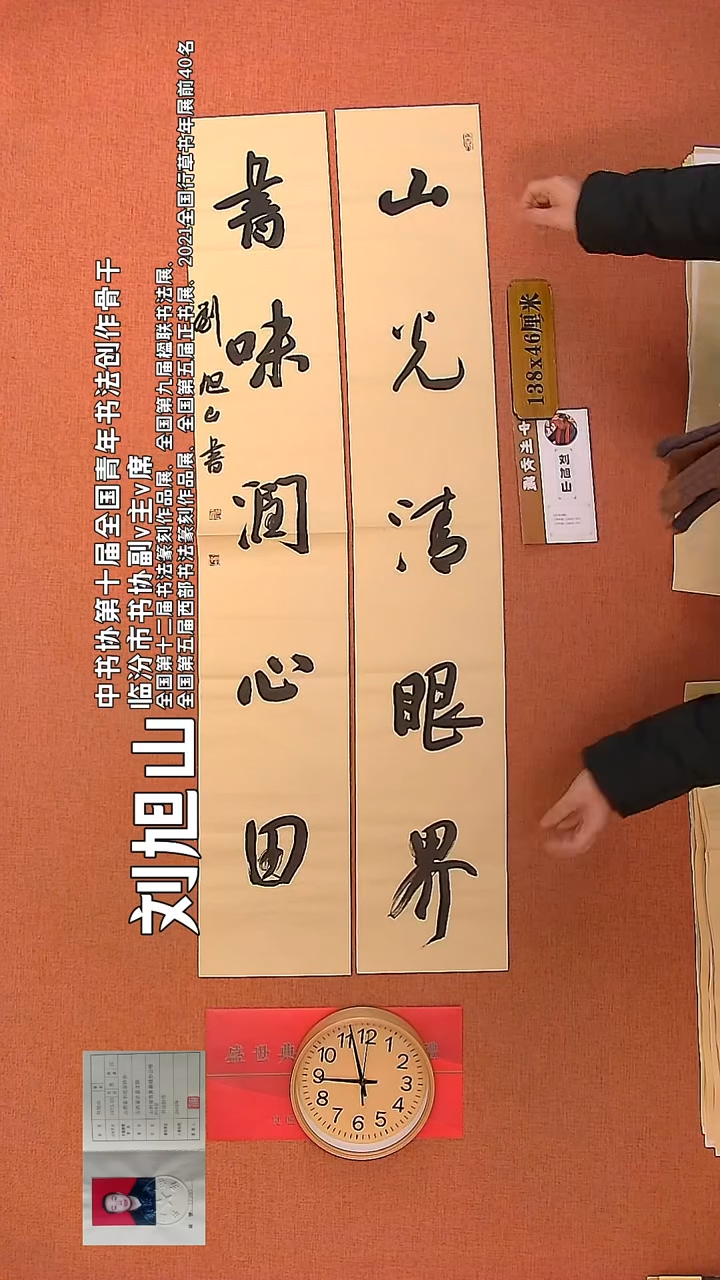 山光清眼界
書味润心田
劉旭山書
中书协第十届全国青年书法创作骨干
临汾市书协副v主v席
全国第十二届书法篆刻作品展、全国第九届楹联书法展、
全国第五届西部书法篆刻作品展、全国第五届正书展、2021全国行草书年展前40名
刘旭山
138x46厘米
刘旭山
12
1
2
3
4
5
6
7
8
9
10
11